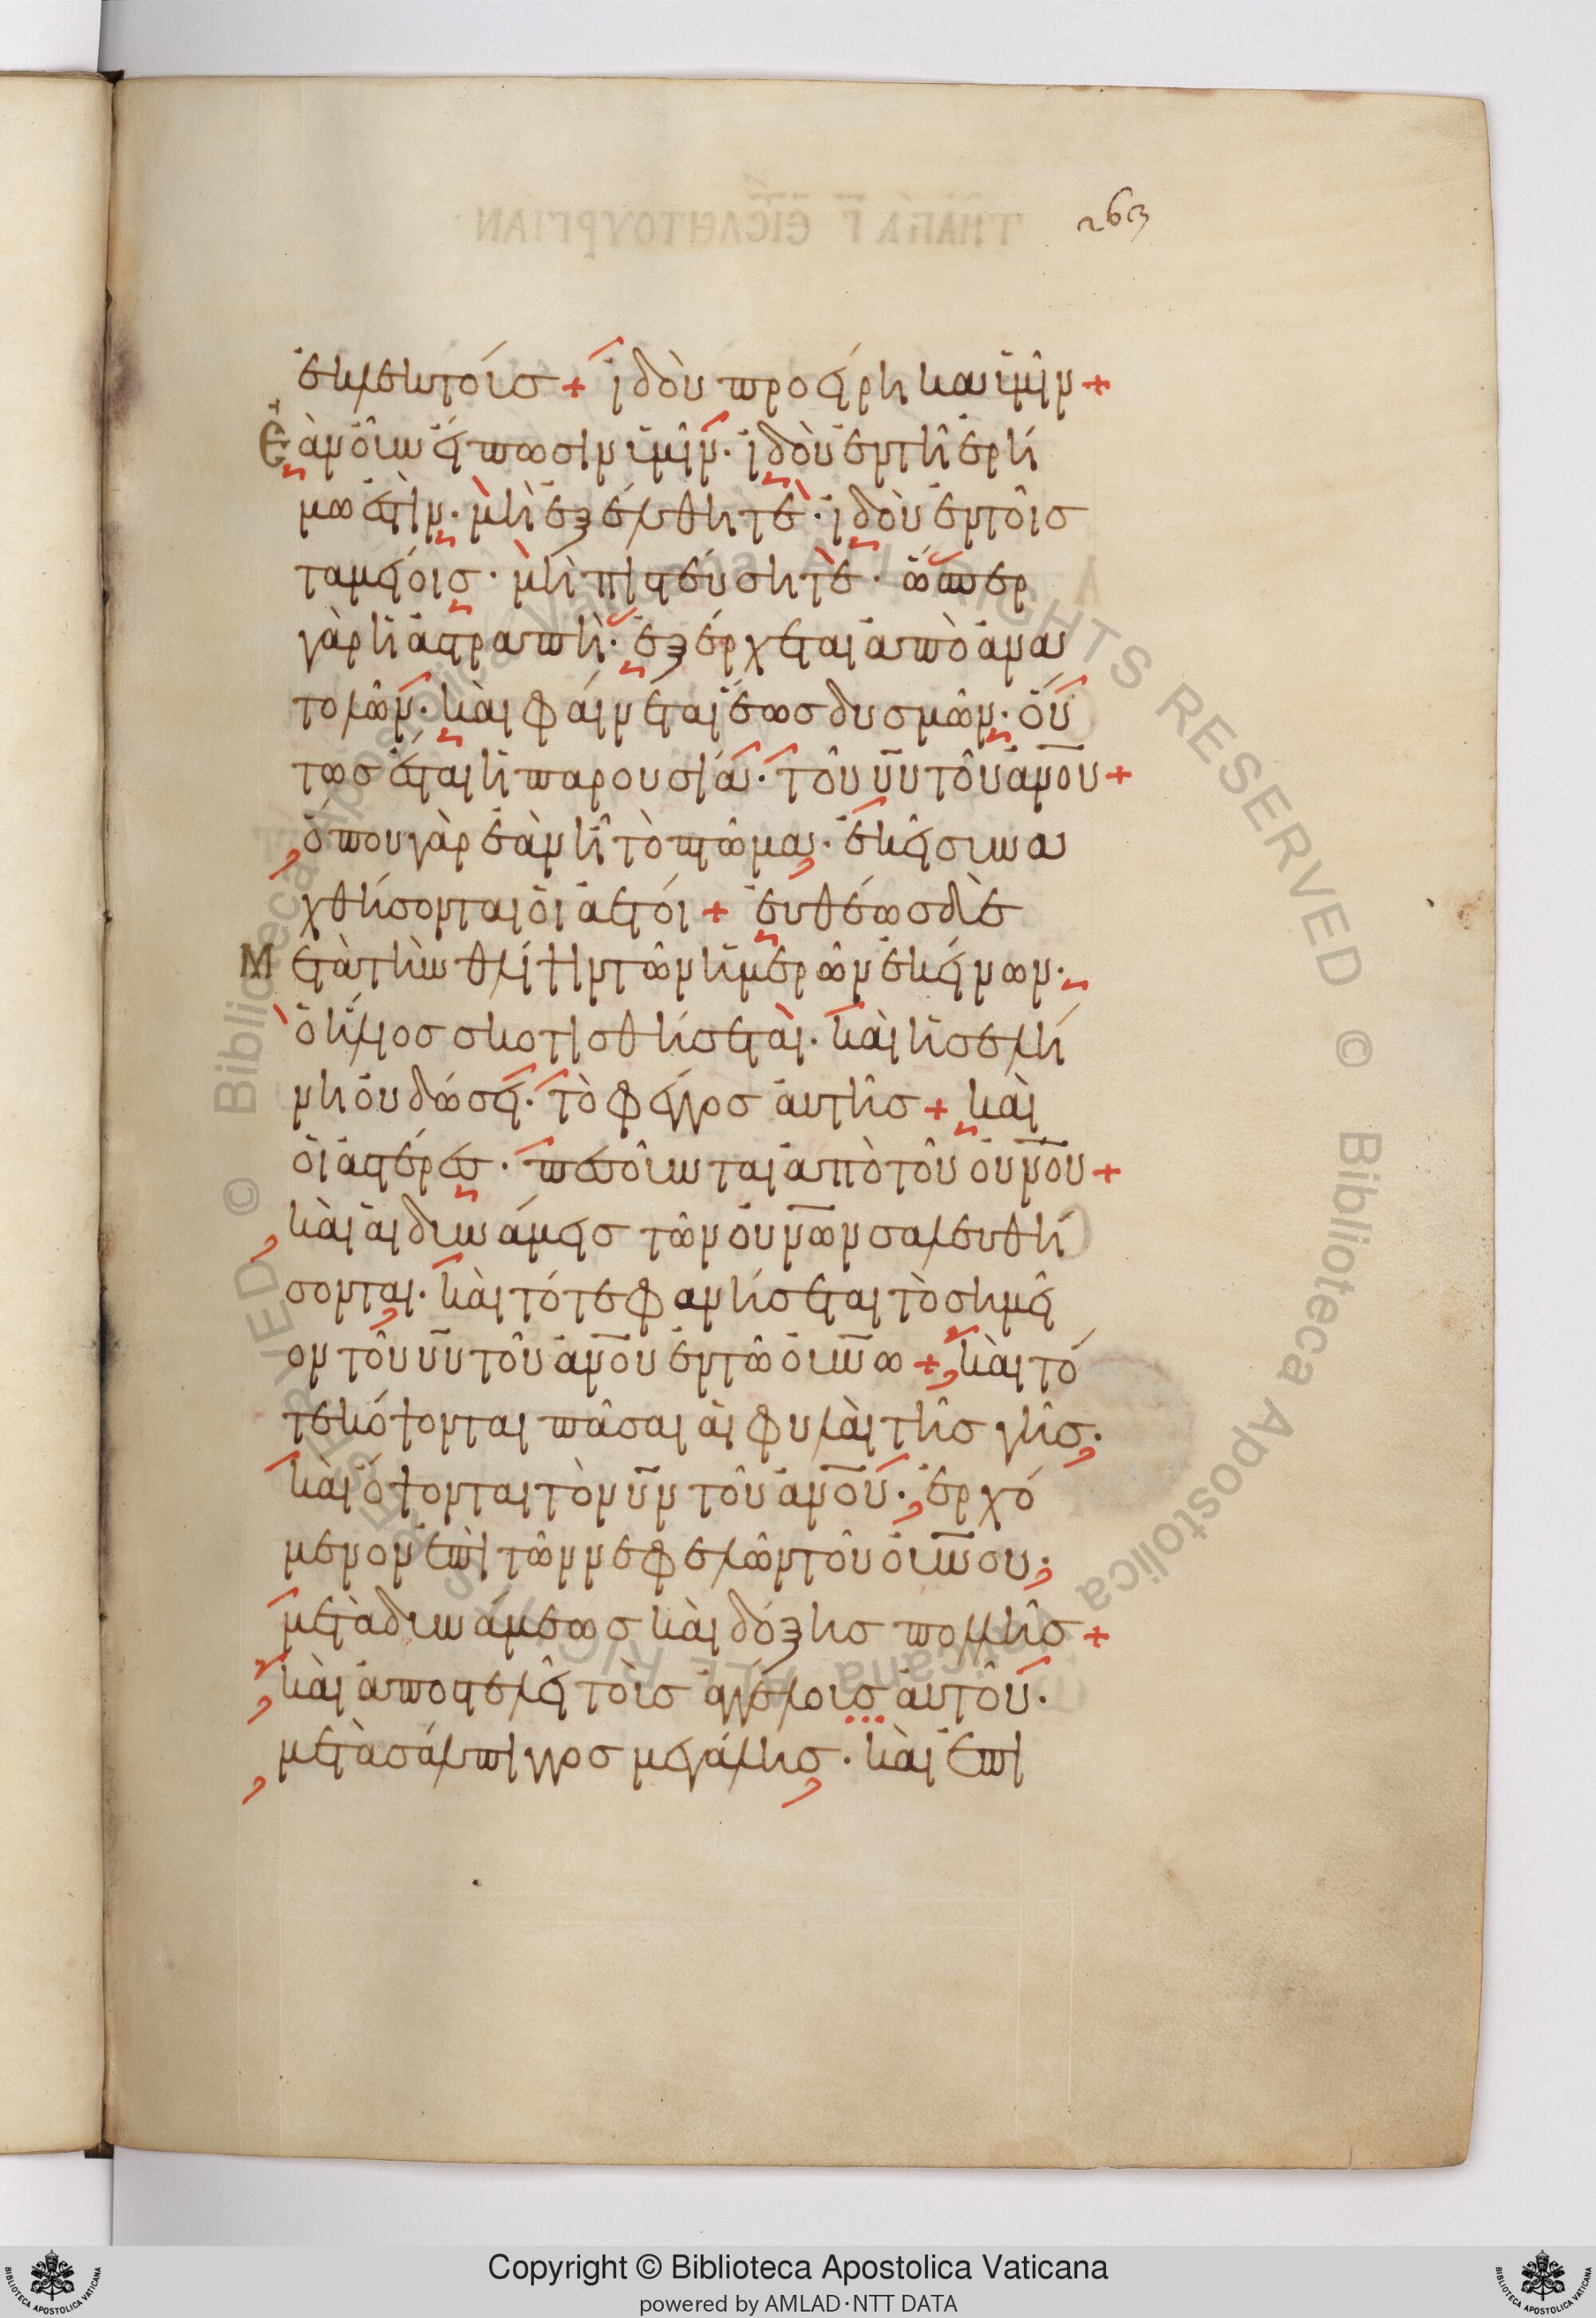 263
ἐκλεκτούσ + ἰδοὺ προείρηκα ὑμῖν +
Ἐὰν οὖν εἴπωσιν ὑμῖν· ἰδοὺ ἐν τῆ ἐρή
μω ἐστὶν· μὴ ἐξέλθητε· ἰδοὺ ἐν τοῖσ
ταμείοισ· μὴ πιστεύσητε· ὥσπερ
γὰρ ἡ ἀστραπὴ· ἐξέρχεται ἀπὸ ἀνα
τολῶν· καὶ φαίνεται ἕωσ δυσμῶν· οὕ
τωσ ἔσται ἡ παρουσία· τοῦ υυ τοῦ ανου +
ὅπου γὰρ ἐὰν ἦ τὸ πτῶμα· ἐκεῖ συνα
χθήσονται οἱ ἀετοί + ἐυθέωσ δὲ
Μετὰ τὴν θλίψιν τῶν ἡμερῶν ἐκείνων·
ὁ ἥλιοσ σκοτισθήσεται· καὶ ἡ σελή
νη οὐ δώσει· τὸ φέγγοσ ἀυτῆσ + καὶ
οἱ ἀστέρεσ· πεσοῦνται ἀπὸ τοῦ ουνου +
καὶ αἱ δυνάμεισ τῶν ουνων σαλευθή
σονται· καὶ τότε φανήσεται τὸ σημεῖ
ον τοῦ υυ τοῦ ανου ἐν τῶ ουνω + καὶ τό
τε κόψονται πᾶσαι ἁι φυλὰι τῆσ γῆσ·
καὶ ὄψονται τὸν υν τοῦ ανου· ἐρχό
μενον ἐπὶ τῶν νεφελῶν τοῦ ουνου·
μετὰ δυνάμεωσ καὶ δόξησ πολλῆσ +
καὶ ἀποστελεῖ τοὺσ ἀγγέλουσ ἀυτοῦ·
μετὰ σάλπιγγοσ μεγάλησ· καὶ ἐπι
© Biblioteca Apostolica Vaticana ALL RIGHTS RESERVED
Copyright © Biblioteca Apostolica Vaticana
powered by AMLAD·NTT DATA
BIBLIOTECA APOSTOLICA VATICANA
BIBLIOTECA APOSTOLICA VATICANA